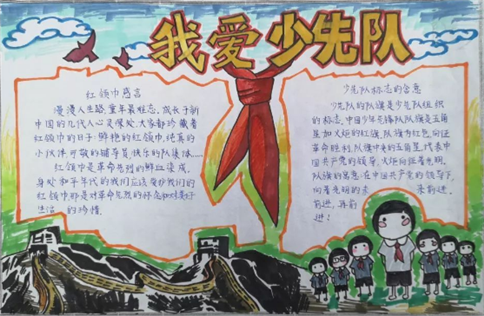 我爱少先队
红领巾感言
漫漫人生路,童年最难忘,成长于新
中国的几代人心灵深处,大家都珍藏着
红领巾的日子:鲜艳的红领巾,纯真的
小伙伴,可敬的辅导员,快乐的队集体……
红领巾是革命先烈的鲜血染成,
身处和平年代的我们应该
红领巾那是对革命先烈的怀念和对美好
生活的珍惜
少先队标志的含意
少先队的队旗是少先队组织
的标志,中国少年先锋队队旗是五角
星加火炬的红旗,旗为红色,向征
革命胜利,队旗中央的五角星,代表中
国共产党的领导,火炬向征着光明,
队旗的寓意:在中国共产党的领导下,
向着光明的未来前进,
前进,再前
进!